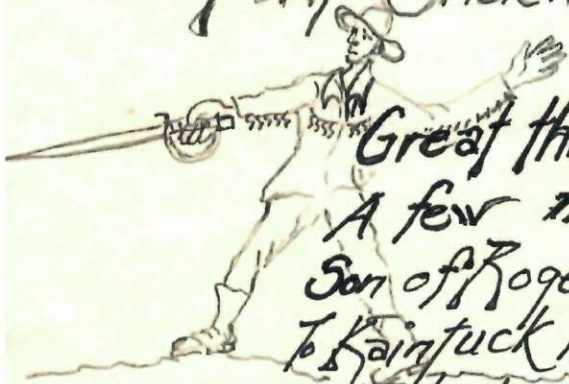 Great th
A few
Son of Roge
To Kaintuck